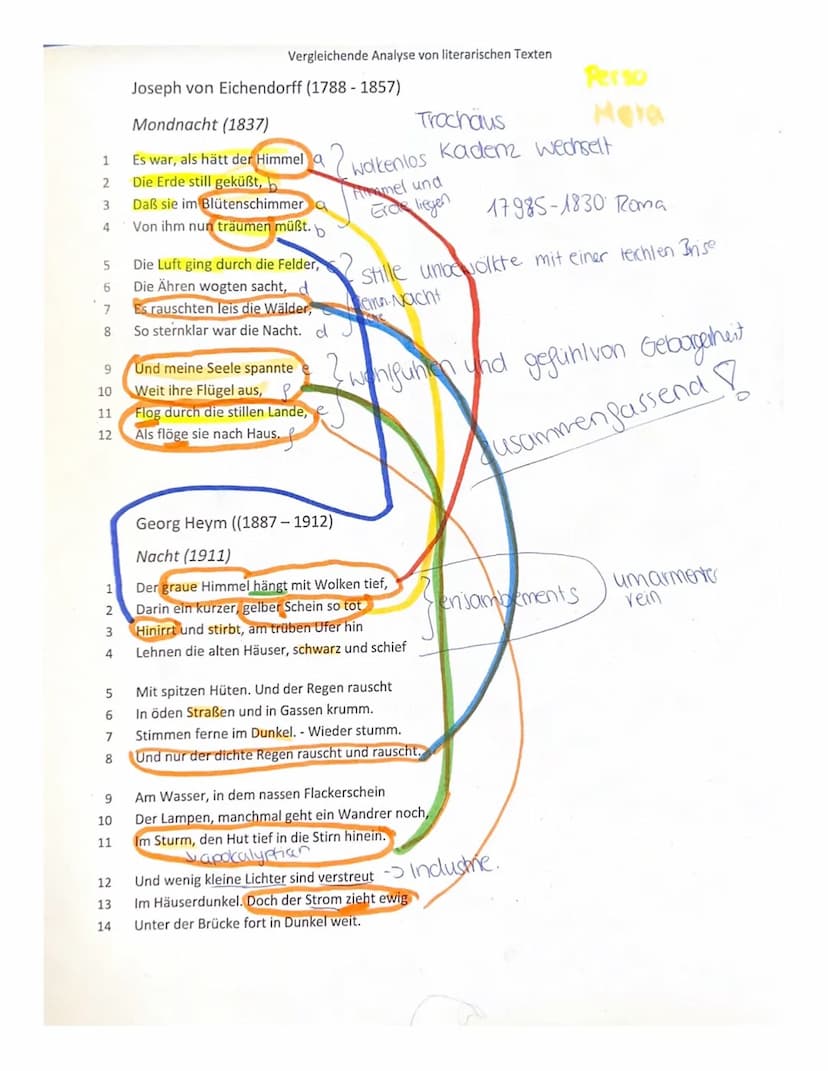 Vergleichende Analyse von literarischen Texten
Perso
Meta
Joseph von Eichendorff (1788 - 1857)
Mondnacht (1837)
Trochäus
Kadenz wechselt
1 Es war, als hätt der Himmel a
2 Die Erde still geküßt, b
3 Daß sie im Blütenschimmer a
4 Von ihm nun träumen müßt. b
wolkenlos
Himmel und
Erde liegen
17985-1830 Roma
5 Die Luft ging durch die Felder, c
6 Die Ähren wogten sacht, d
7 Es rauschten leis die Wälder,
8 So sternklar war die Nacht. d
stille unbewölkte mit einer leichten
Nacht
9 Und meine Seele spannte e
10 Weit ihre Flügel aus, f
11 Flog durch die stillen Lande, e
12 Als flöge sie nach Haus. f
wohlfühlen und gefühl von Geborgenheit
zusammenfassend!
Georg Heym ((1887 – 1912)
Nacht (1911)
1 Der graue Himmel hängt mit Wolken tief,
2 Darin ein kurzer, gelber Schein so tot
3 Hinirrt und stirbt, am trüben Ufer hin
4 Lehnen die alten Häuser, schwarz und schief
enjambements
umarmender
rein
5 Mit spitzen Hüten. Und der Regen rauscht
6 In öden Straßen und in Gassen krumm.
7 Stimmen ferne im Dunkel. - Wieder stumm.
8 Und nur der dichte Regen rauscht und rauscht.
9 Am Wasser, in dem nassen Flackerschein
10 Der Lampen, manchmal geht ein Wandrer noch,
11 Im Sturm, den Hut tief in die Stirn hinein.
12 Und wenig kleine Lichter sind verstreut -> Industrie.
13 Im Häuserdunkel. Doch der Strom zieht ewig
14 Unter der Brücke fort in Dunkel weit.